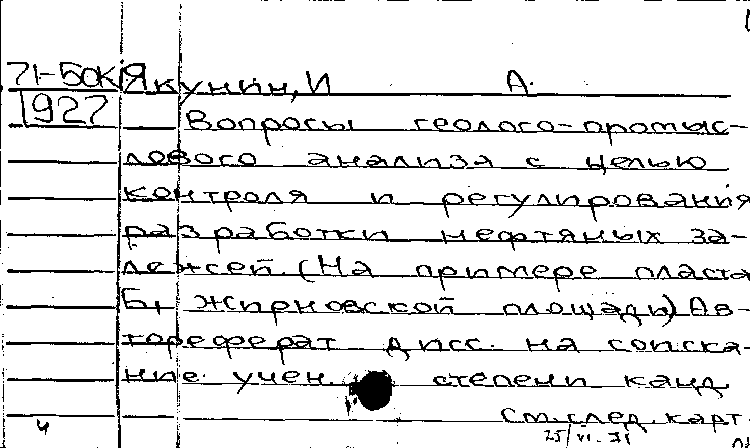 71-5ОКЯ Якунин, И А.
1927
Вопросы геолого-промыс-
лового анализа с целью
контроля и регулирования
разработки нефтяных за-
лежей. (На примере пласта
Б₁ Жирновской площади) Ав-
тореферат дисс. на соиска-
ние учен. степени канд
См. след. карт.
4 25/VI-71